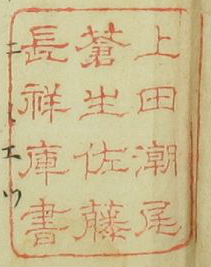 上田潮尾
蒼生佐藤
長祥庫書